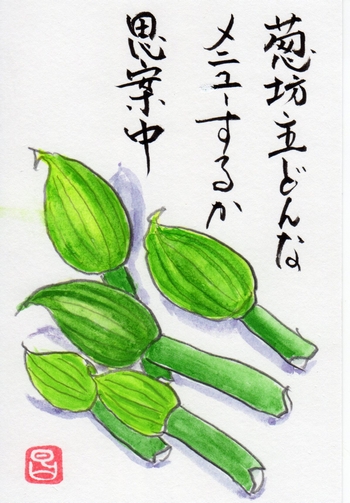 葱坊主どんな
メニューするか
思案中